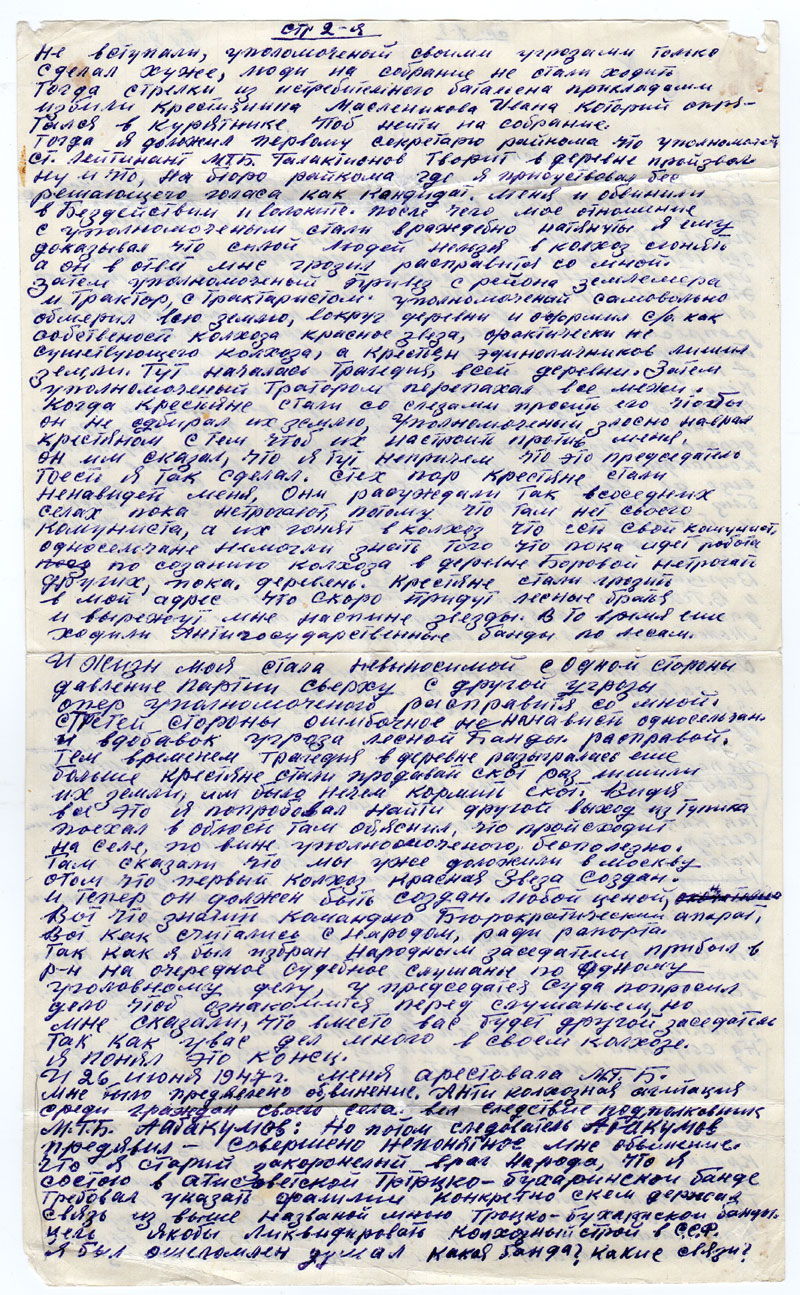 стр 2-я
Не вступали, уполомоченый своими угрозами только
сделал хуже, люди на собрание не стали ходить
Тогда стрелки из истребителного баталена прикладами
избили крестянина Масленикова Ивана который спря-
тался в курятнике чтоб нейти на собрание.
Тогда я доложил первому секретарю райкома что уполномоченый
ст. Лейтинант М.Г.Б. Галактионов Творит в деревне произвол
ну и что, на бюро райкома где я присуствовал бес
решающего голоса как кандидат. Меня и обвинили
в Бездействии и волоките. после чего мое отношение
с уполномоченым стали враждебно натянуты я ему
доказывал что силой людей нельзя в колхоз сгонять
а он в ответ мне грозил расправится со мной.
Затем уполномоченый привез с района землемера
и трактор, с трактаристом. уполномоченый самовольно
обмерил всю землю, вокруг деревни и оформил её как
собственость колхоза красное звеза, фактически не
существующего колхоза, а крестьен единоличников лишил
земли. Тут началась трагедия, всей деревни. Затем
уполномоченый Тратором перепахал все межи.
Когда крестяне стали со слезами просить его чтобы
он не одбирал их землю, уполномоченый злосно наврал
крестяном с тем чтоб их настроить против меня,
он им сказал, что я тут непричем что это председатель
тоесть я так сделал. Стех пор крестяне стали
ненавидеть меня, Они расуждали так всоседних
селах пока нетрогают, потому что там нет своего
комуниста, а их гонят в колхоз что есть свой комунист,
односелчане немогли знать того что пока идет работа
по созданию колхоза в деревне Боровой нетрогать
других, пока, деревень. Крестяне стали грозить
в мой адрес что скоро придут лесные братя
и вырежут мне наспине звезды. В то время еще
ходили Антигосударственные банды по лесам.
И жизнь моя стала невыносимой с одной стороны
давление партии сверху с другой угрозы
опер уполномоченого расправится со мной.
с третей стороны ошибочное не ненависть односельчан.
и вдобавок угроза лесной Банды расправой.
Тем временем трагедия в деревне разыгралась еше
больше крестяне стали продавать скот раз лишили
их земли, им было нечем кормить скот. Видя
все это я попробовал найти другой выход из тупика
поехал в область там обяснил, что происходит
на селе, по вине уполномоченого, бесполезно.
Там сказали что мы уже доложили в москву
отом что первый колхоз красная Звеза создан.
и тепер он должен быть создан. любой ценой,
Вот что значит командно Бюрократический апарат,
Вот как считались с народом, ради рапорта.
Так как я был избран Народным заседателем прибыл в
р-н на очередное судебное слушанье по одному
уголовному делу, у председателя суда попросил
дело чтоб ознакомится перед слушаньем, но
мне сказали, что вместо вас будет другой заседатель
так как у вас дел много в своем колхозе.
я понял это конец.
И 26 июня 1947г. меня арестовала М.Г.Б.
мне было предявлено обвинение. Анти колхозная агитация
среди граждан своего села. вел следствие подполковник
М.Г.Б. Абакумов: Но потом следователь Абакумов
предявил — совершено непонятное мне обвинение.
что я старый закоренелый враг народа, что я
состою в атисоветской Троцко-бухаринской банде
требовал указать фамилии конкретно скем держал
связь из выше названой мною Троцко-бухариской банды.
цель якобы ликвидировать колхозный строй в С.С.Р.
я был ошеломлен думал какая банда? какие связи?